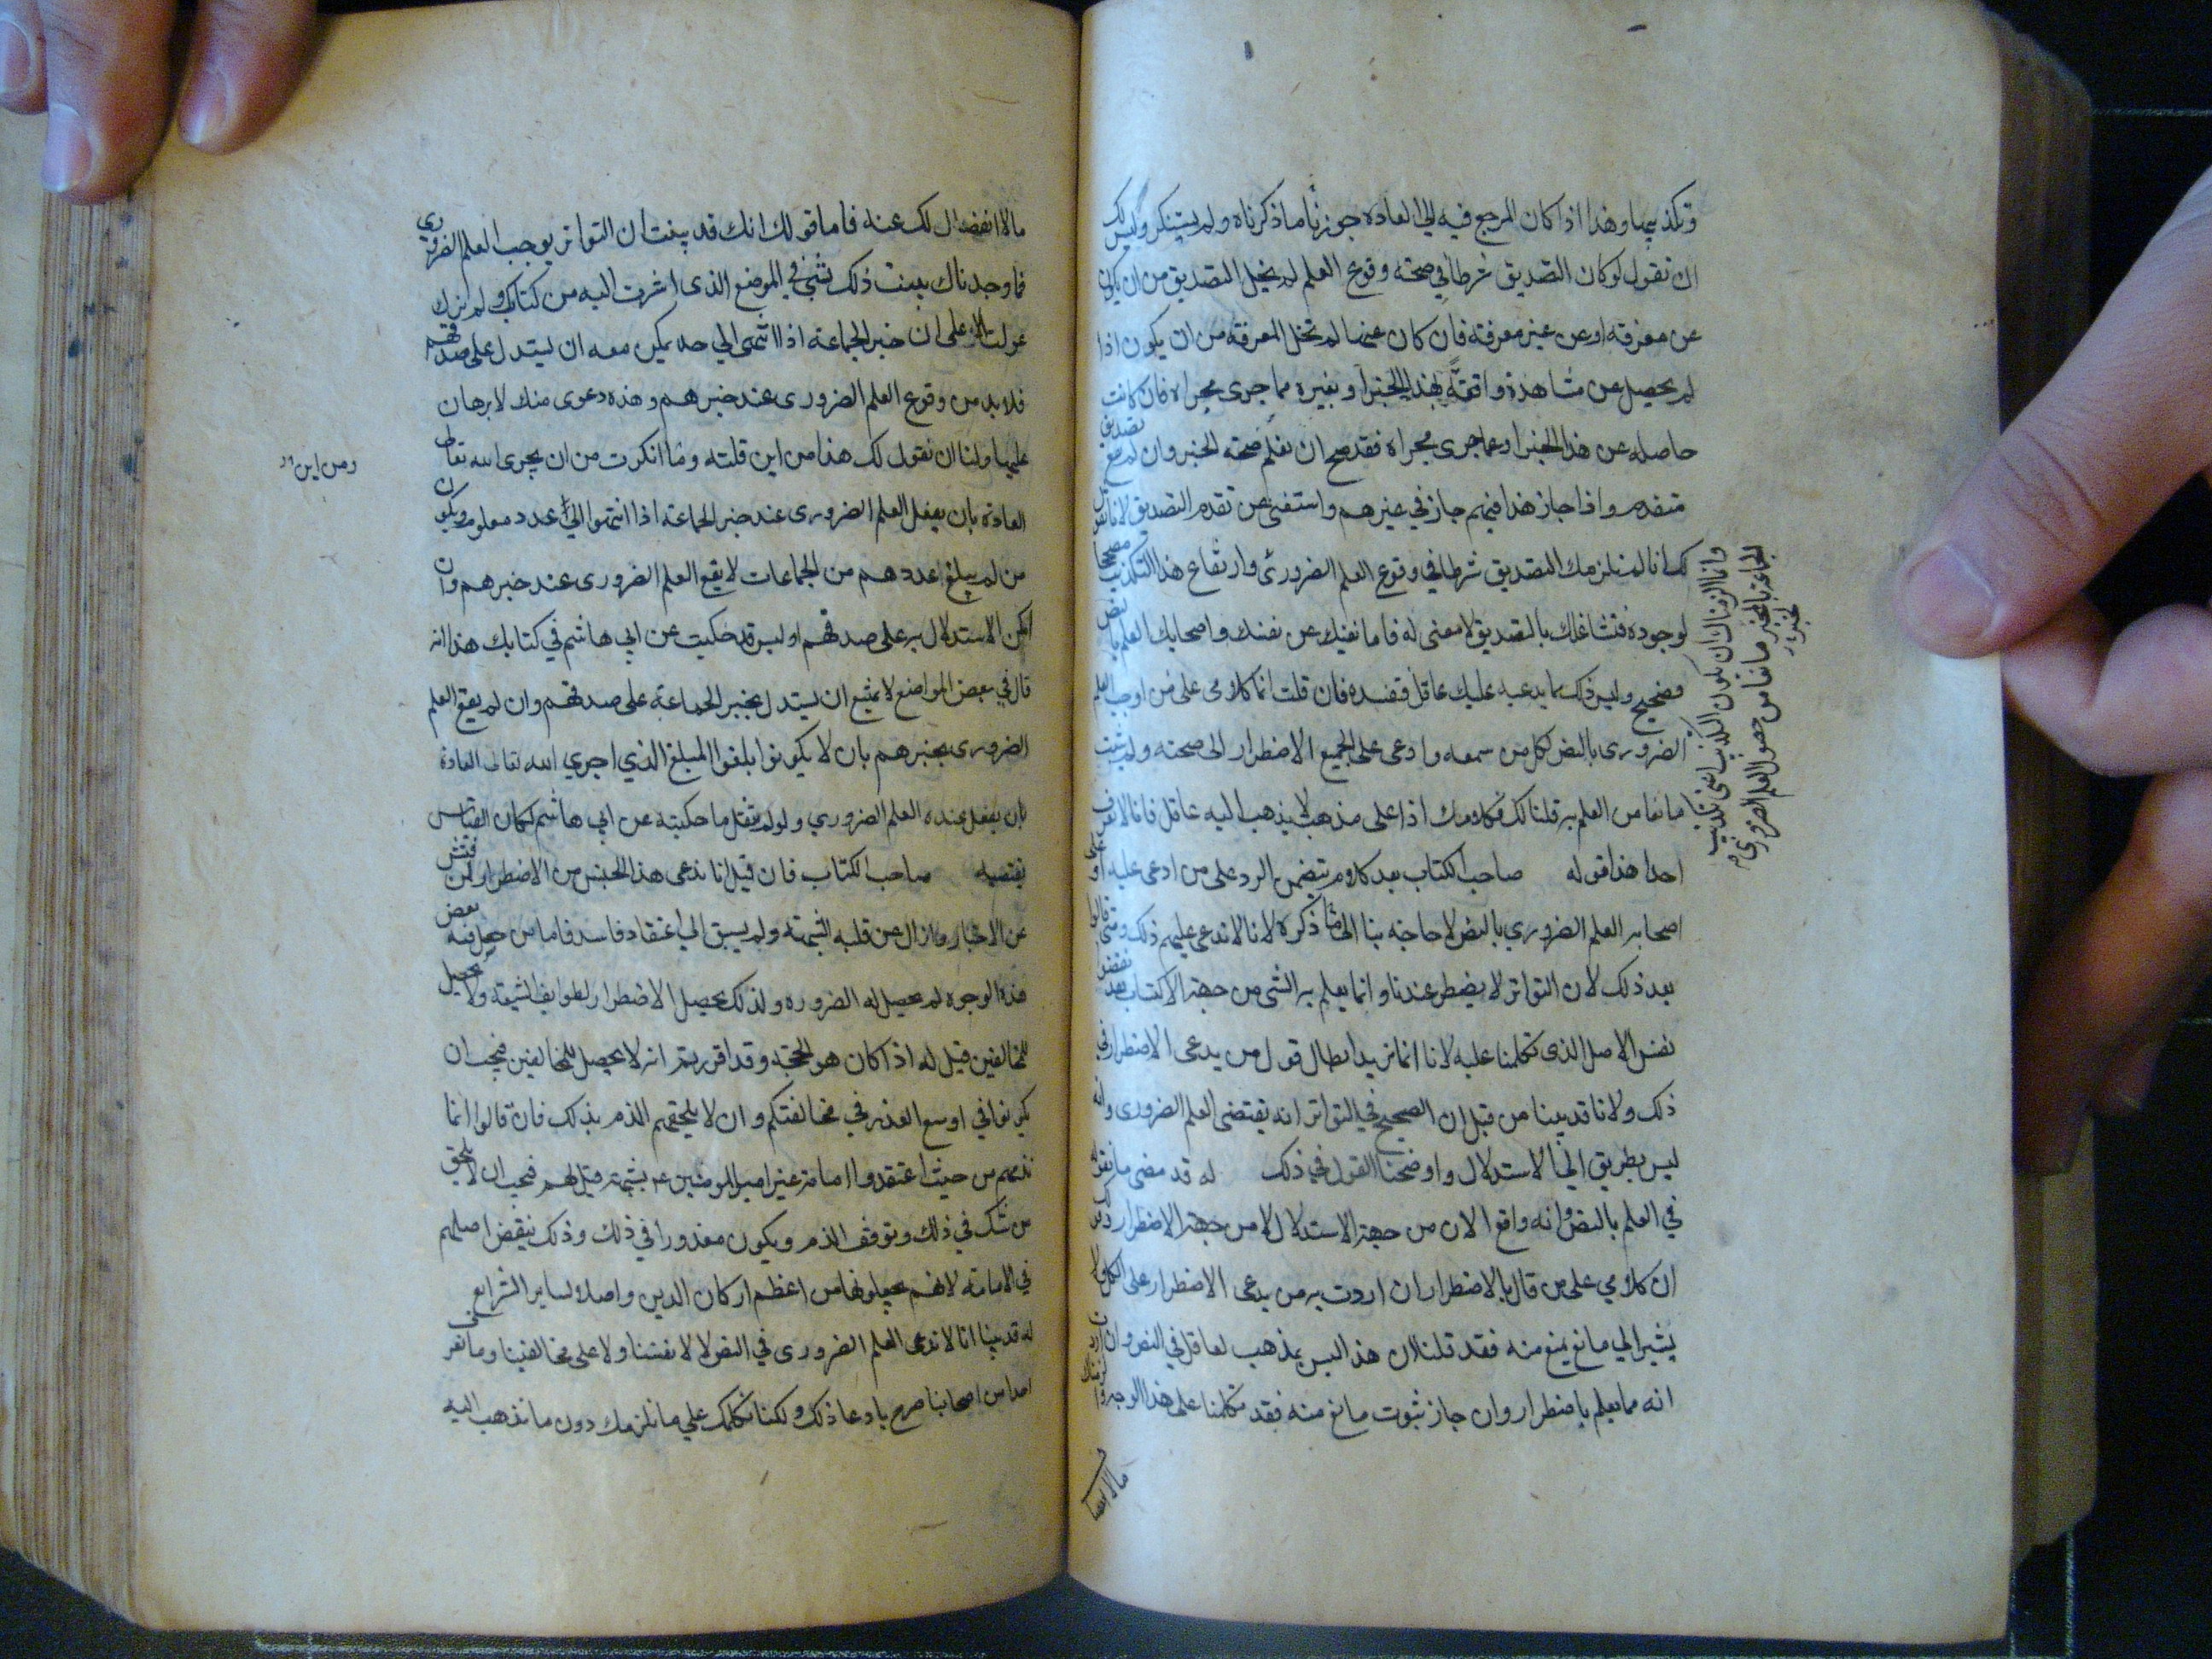 وتكذيبها وهذا اذا كان المرجع فيه الي العادة جوزنا ما ذكرناه ولم يستنكر وليس لك
ان تقول لو كان التصديق شرطا في صحته وقوع العلم لم يخل التصديق من ان يكون
عن معرفته او عن غير معرفته فان كان عنها لم تخل المعرفة من ان يكون اذا
لم يحصل عن مشاهدة واقعة بهذا الخبر او بغيره مما جرى مجراه فان كانت
حاصله عن هذا الخبر او عما جرى مجراه فقد صح ان نعلم صحته الخبر وان لم يقع تصديق
متقدم واذا جاز هذا فيهم جاز في غيرهم واستغنى عن تقدم التصديق لانا نقول
لك انا لم نلزمك التصديق شرطا في وقوع العلم الضروري وارتفاع هذا التكذيب مصححا
لوجوده فتشاغلك بالتصديق لا معنى له فاما نفيك عن نفسك واصحابك العلم بالنص
فصحيح وليس ذلك مما يدعيه عليك عاقل فتفسده فان قلت انما كلامى على من اوجب العلم
الضرورى بالنص لكل من سمعه وادعى على الجميع الاضطرار الى صحته ولم يثبت
مانعا من العلم به قلنا لك فكلامك اذا على مذهب لا يذهب اليه عاقل فانا لا نعرف
احدا هذا قوله صاحب الكتاب بعد كلام يتضمن الرد على من ادعى عليه او على
اصحابه العلم الضروري بالنص لا حاجة بنا الى ذكره لانا لا ندعى عليهم ذلك ومتى قالوا
بعد ذلك لان التواتر لا يضطر عندنا وانما يعلم به الشى من جهة الاكتساب فقد نقضوا
نفس الاصل الذى تكلمنا عليه لانا انما نريد ابطال قول من يدعى الاضطرار في
ذلك ولانا قد بينا من قبل ان الصحيح في التواتر انه يقتضى العلم الضرورى وانه
ليس بطريق الي الاستدلال واوضحنا القول في ذلك له قد مضى ما نقوله
في العلم بالنص وانه واقع الان من جهة الاستدلال لا من جهة الاضطرار وليس لك
ان كلامي على من قال بالاضطرار ان اردت به من يدعى الاضطرار على الكل ولا
يشير الي مانع يمنع منه فقد قلنا ان هذا ليس بمذهب لعاقل في النص وان اردت
انه مما يعلم باضطرار وان جاز ثبوت مانع منه فقد تكلمنا على هذا الوجه والزمناك
وانا الزمناك ان يكون التكذيب اعنى تكذيب
الجماعة بالخبر مانعا من حصول العلم الضروري
بخبره
ما لا انفصال لك عنه فاما قولك انك قد بينت ان التواتر يوجب العلم الضروري
فما وجدناك بينت ذلك بشيء في الموضع الذى اشرت اليه من كتابك ولم نرك
عولت الا على ان خبر الجماعة اذا انتهى الي حد يمكن معه ان يستدل على صدقهم
فلا بد من وقوع العلم الضرورى عند خبرهم وهذه دعوى منك لا برهان
عليها ولنا ان نقول لك هذا من اين قلته وما انكرت من ان يجرى الله تعالى
العادة بان يفعل العلم الضرورى عند خبر الجماعة اذا انتهوا الي عدد معلوم ويكون
من لم يبلغ عددهم من الجماعات لا يقع العلم الضرورى عند خبرهم وان
امكن الاستدلال به على صدقهم او ليس قد حكيت عن ابي هاشم في كتابك هذا انه
قال في بعض المواضع لا يمتنع ان يستدل بخبر الجماعة على صدقهم وان لم يقع العلم
الضرورى بخبرهم بان لا يكونوا بلغوا المبلغ الذي اجري الله تعالى العادة
بان يفعل عنده العلم الضروري ولو لم تنقل ما حكيته عن ابي هاشم لكان القياس
يقتضيه صاحب الكتاب فان قيل انا ندعى هذا الجنس من الاضطرار لمن فتش
عن الاخبار وزال عن قلبه الشبهة ولم يسبق الي اعتقاد فاسد فاما من حصل فيه بعض
هذه الوجوه لم يحصل له الضرورة ولذلك يحصل الاضطرار لطوايف الشيعة ولا يحصل
للمخالفين قيل له اذا كان هو الحجة وقد اقررتم انه لا يحصل للمخالفين فيجب ان
يكونوا في اوسع العذر في مخالفتكم وان لا يلحقهم الذم بذلك فان قالوا انما
نذمهم من حيث اعتقدوا امامة غير امير المومنين ع بشبهة قيل لهم فيجب ان لا يلحق
من شك في ذلك وتوقف الذم ويكون معذورا في ذلك وذلك ينقض اصلهم
في الامامة لانهم يجعلونها من اعظم اركان الدين واصلا لساير الشرايع
له قد بينا انا لا ندعى العلم الضرورى في النص لا لانفسنا ولا على مخالفينا وما نعرف
احدا من اصحابنا صرح بادعا ذلك ولكنا نكلمك علي ما نلزمك دون ما نذهب اليه
ومن اين